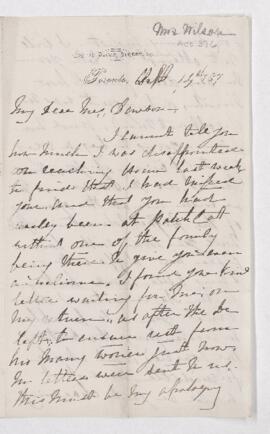 Mrs Wilson
Toronto,
My Dear Mrs. Dawson
I cannot tell you
how much I was disappointed
on reaching home last week
to find that I had missed
you, and that you had
been at
without one of the family
being there to give you even
a welcome. I found your kind
letter waiting for me on
my return, as after the
left, to ensure rest from
his many worries just now
no letters were sent to us.
This must be my apology